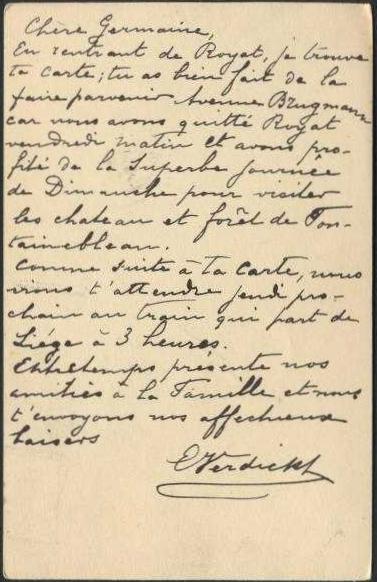 Chère Germaine,
En rentrant de Royat, je trouve
ta carte; tu as bien fait de la
faire parvenir Avenue Brugmann
car nous avons quitté Royat
vendredi matin et avons pro-
fité de la superbe journée
de Dimanche pour visiter
les chateau et forêt de Fon-
tainebleau.
Comme suite à ta carte, nous
irons t'attendre jeudi pro-
chain au train qui part de
Liége à 3 heures.
Entretemps présente nos
amitiés à la Famille et nous
t'envoyons nos affectueux
baisers
E Verdickt